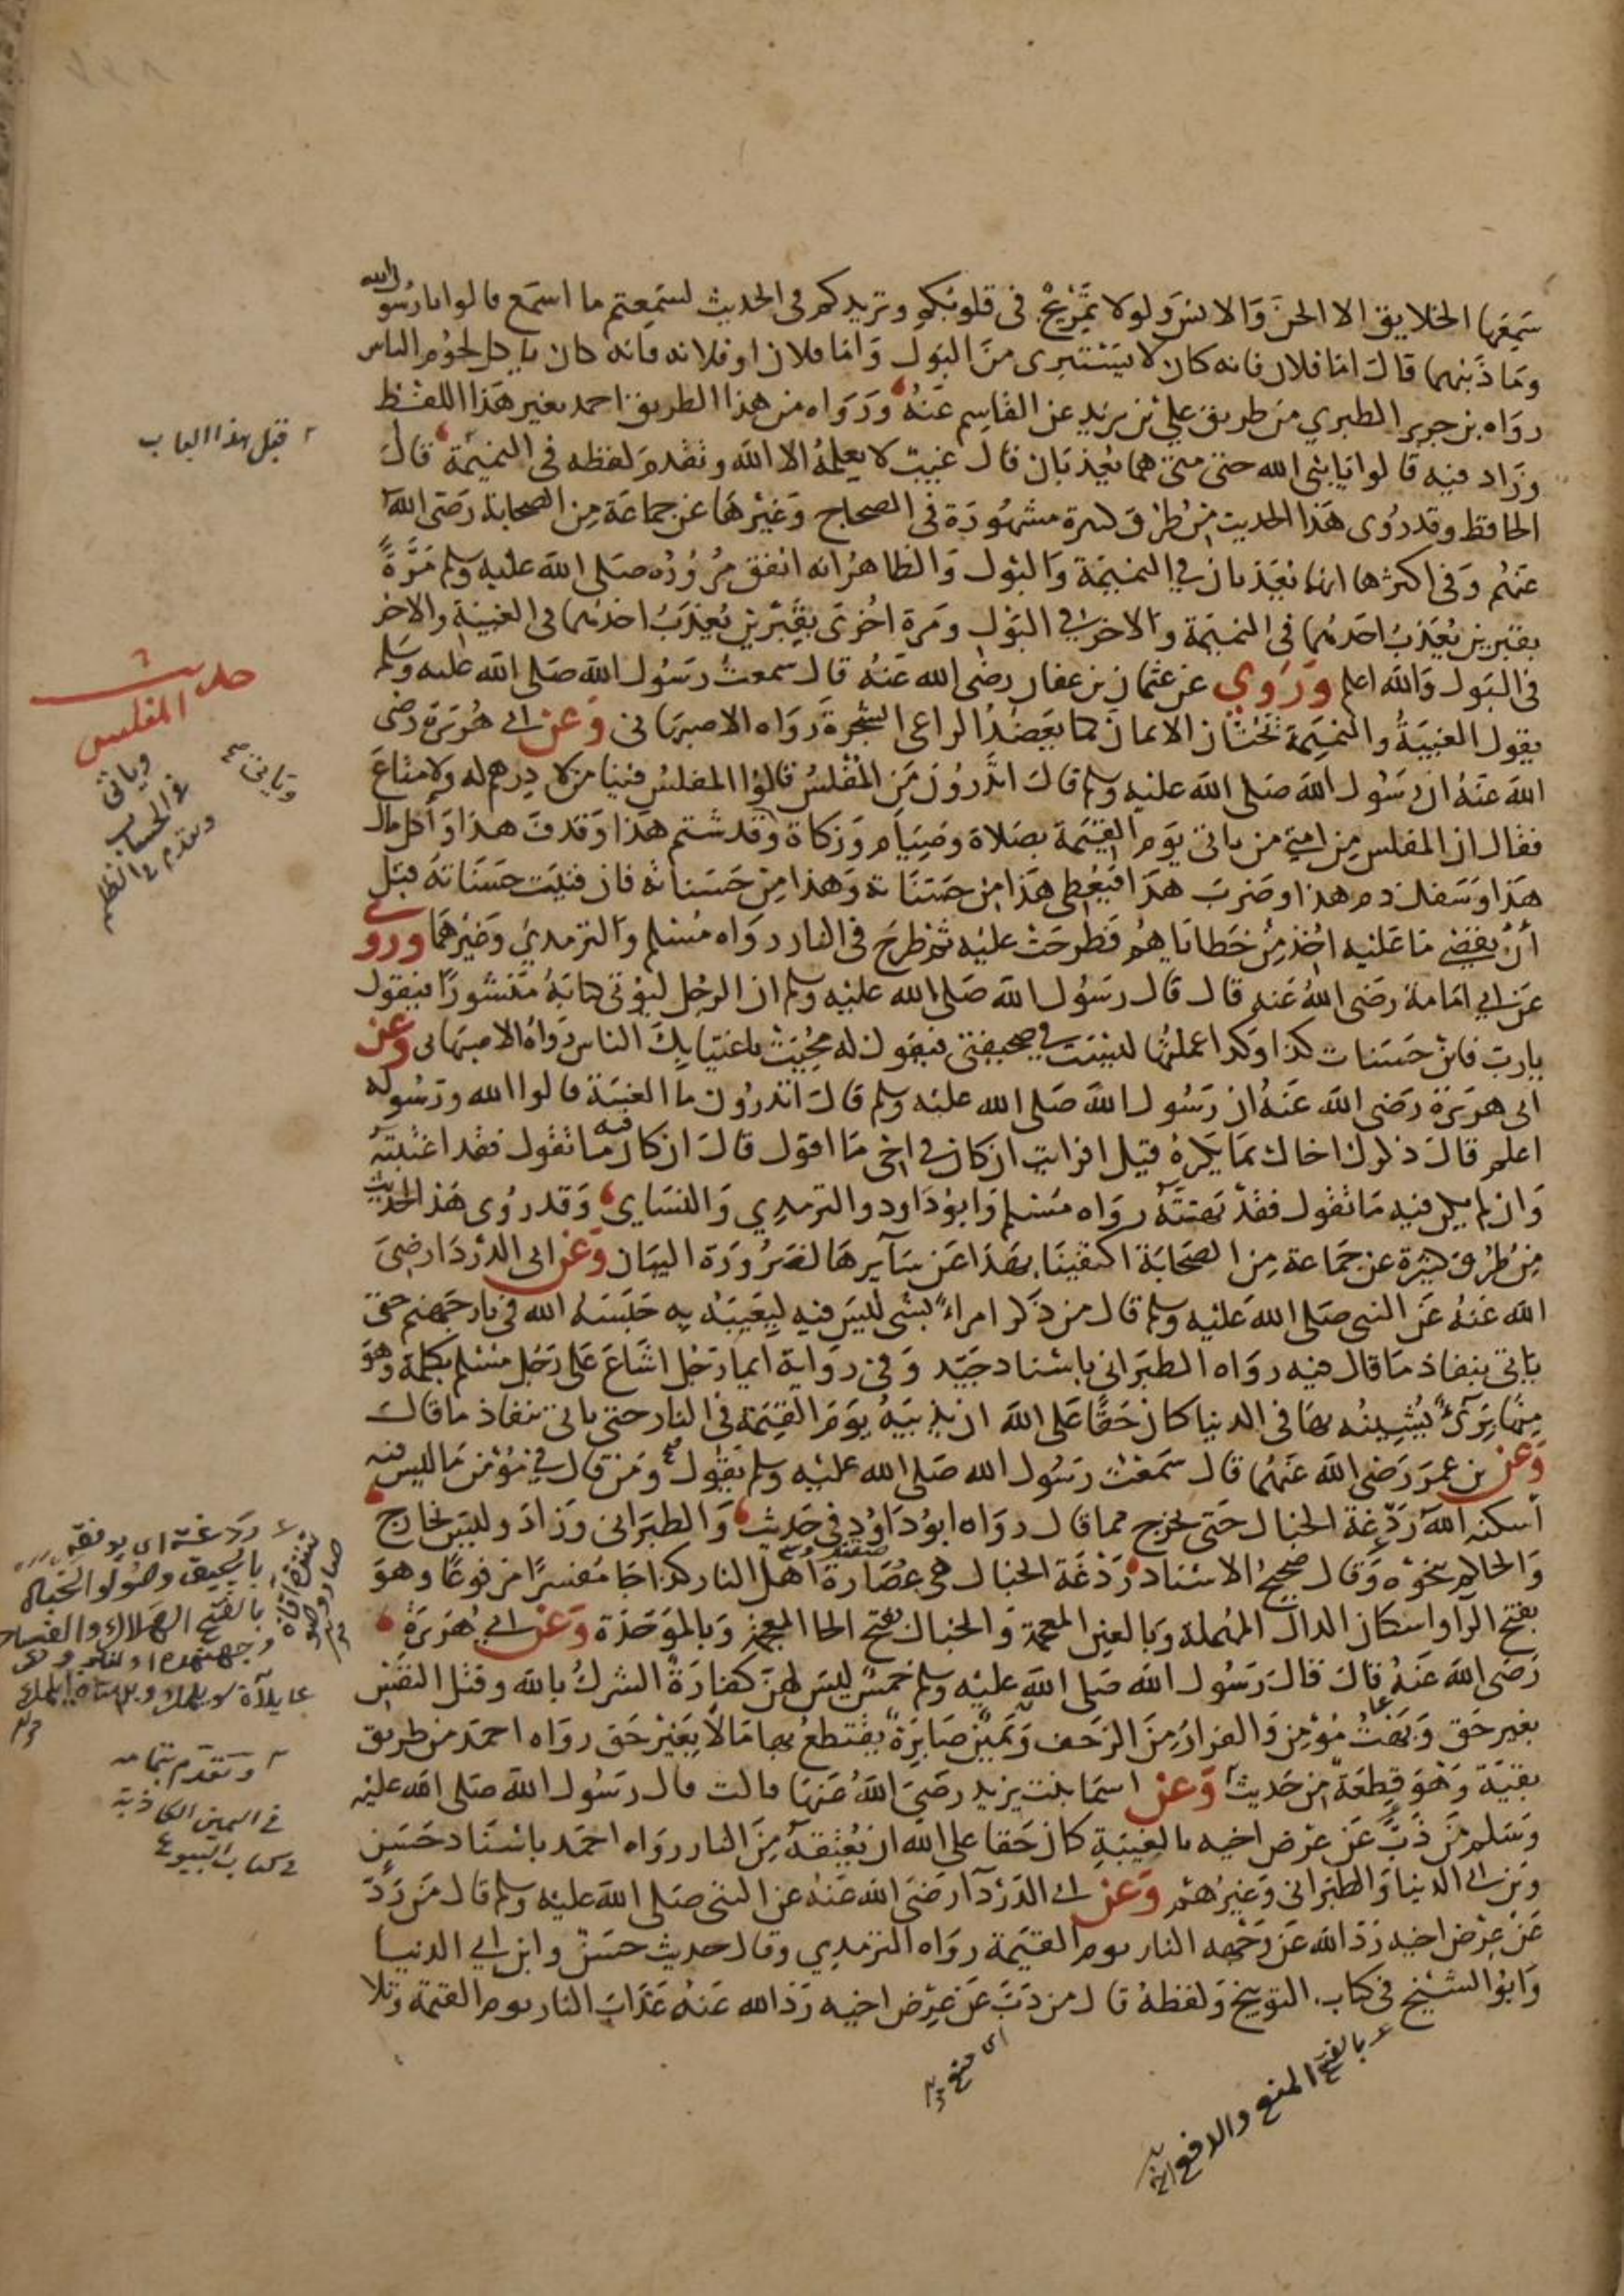 سمعها الخلايق الا الجن والانس ولولا تمزيج في قلوبكم وتزيدكم في الحديث لسمعتم ما اسمع قالوا يا رسول الله
وما ذنبهما قال اما فلان فانه كان لا يستبرى من البول واما فلان او فلانه فانه كان ياكل لحوم الناس
رواه بن جرير الطبري من طريق علي بن يزيد عن القاسم عنه ورواه من هذا الطريق احمد بغير هذا اللفظ
وزاد فيه قالوا يا نبي الله حتى متى هما يعذبان قال غيب لا يعلمه الا الله وتقدم لفظه في النميمة قال
الحافظ وقد روى هذا الحديث من طرق كثيرة مشهورة في الصحاح وغيرها عن جماعة من الصحابة رضى الله
عنهم وفي اكثرها انهما يعذبان في النميمة والبول والظاهر انه اتفق مروره صلى الله عليه وسلم مرة
بقبرين يعذب احدهما في النميمة والاخر في البول ومرة اخرى بقبرين يعذب احدهما في الغيبة والاخر
في البول والله اعلم وروي عن عثمان بن عفان رضي الله عنه قال سمعت رسول الله صلى الله عليه وسلم
يقول الغيبة والنميمة تحتان الايمان كما يعضد الراعي الشجرة رواه الاصبهاني وعن ابي هريرة رضي
الله عنه ان رسول الله صلى الله عليه وسلم قال اتدرون من المفلس قالوا المفلس فينا من لا درهم له ولا متاع
فقال ان المفلس من امتي من ياتي يوم القيمة بصلاة وصيام وزكاة وقد شتم هذا وقذف هذا واكل مال
هذا وسفك دم هذا وضرب هذا فيعطى هذا من حسناته وهذا من حسناته فان فنيت حسناته قبل
أن يقضى ما عليه اخذ من خطاياهم فطرحت عليه ثم طرح في النار رواه مسلم والترمذي وغيرهما وروى
عن ابي امامة رضي الله عنه قال قال رسول الله صلى الله عليه وسلم ان الرجل ليؤتى كتابه منشورا فيقول
يا رب فاين حسنات كذا وكذا عملتها ليست في صحيفتي فيقول له محيت باغتيابك الناس رواه الاصبهاني وعن
ابي هريرة رضي الله عنه ان رسول الله صلى الله عليه وسلم قال اتدرون ما الغيبة قالوا الله ورسوله
اعلم قال ذكرك اخاك بما يكره قيل افرايت ان كان في اخي ما اقول قال ان كان فيه ما تقول فقد اغتبته
وان لم يكن فيه ما تقول فقد بهته رواه مسلم وابو داود والترمذي والنسايي وقد روى هذا الحديث
من طرق كثيرة عن جماعة من الصحابة اكتفينا بهذا عن سايرها لضرورة البيان وعن ابي الدردا رضي
الله عنه عن النبي صلى الله عليه وسلم قال من ذكر امراء بشي ليس فيه ليعيبه به حبسه الله في نار جهنم حتى
ياتي بنفاذ ما قال فيه رواه الطبراني باسناد جيد وفي رواية ايما رجل اشاع على رجل مسلم بكلمة وهو
منها برئ يشينه بها في الدنيا كان حقا على الله ان يذيبه يوم القيمة في النار حتى ياتي بنفاذ ما قال
وعن بن عمر رضي الله عنهما قال سمعت رسول الله صلى الله عليه وسلم يقول ومن قال في مؤمن ما ليس فيه
أسكنه الله ردغة الخبال حتى يخرج مما قال رواه ابو داود في حديث والطبراني وزاد وليس بخارج
والحاكم بنحوه وقال صحيح الاسناد ردغة الخبال هي عصارة أهل النار كذا جا مفسرا مرفوعا وهو
بفتح الرا واسكان الدال المهملة وبالغين المعجمة والخبال بفتح الخا المعجمة وبالموحدة وعن ابي هريرة
رضي الله عنه قال قال رسول الله صلى الله عليه وسلم خمس ليس لهن كفارة الشرك بالله وقتل النفس
بغير حق وبهت مؤمن والفرار من الزحف ويمين صابرة يقتطع بها مالا بغير حق رواه احمد من طريق
بقية وهو قطعة من حديث وعن اسما بنت يزيد رضي الله عنها قالت قال رسول الله صلى الله عليه
وسلم من ذب عن عرض اخيه بالغيبة كان حقا على الله ان يعتقه من النار رواه احمد باسناد حسن
وبن ابي الدنيا والطبراني وغيرهم وعن ابي الدردآ رضي الله عنه عن النبي صلى الله عليه وسلم قال من رد
عن عرض اخيه رد الله عن وجهه النار يوم القيمة رواه الترمذي وقال حديث حسن وابن ابي الدنيا
وابو الشيخ في كتاب التوبيخ ولفظه قال من ذب عن عرض اخيه رد الله عنه عذاب النار يوم القيمة وتلا
قبل هذا الباب
حديث المفلس
وياتي
في الحساب
وتقدم في الظلم
وياتي
وتقدم بتمامه
في اليمين الكاذبة
في كتاب البيوع
اى منع
بالفتح المنع والدفع